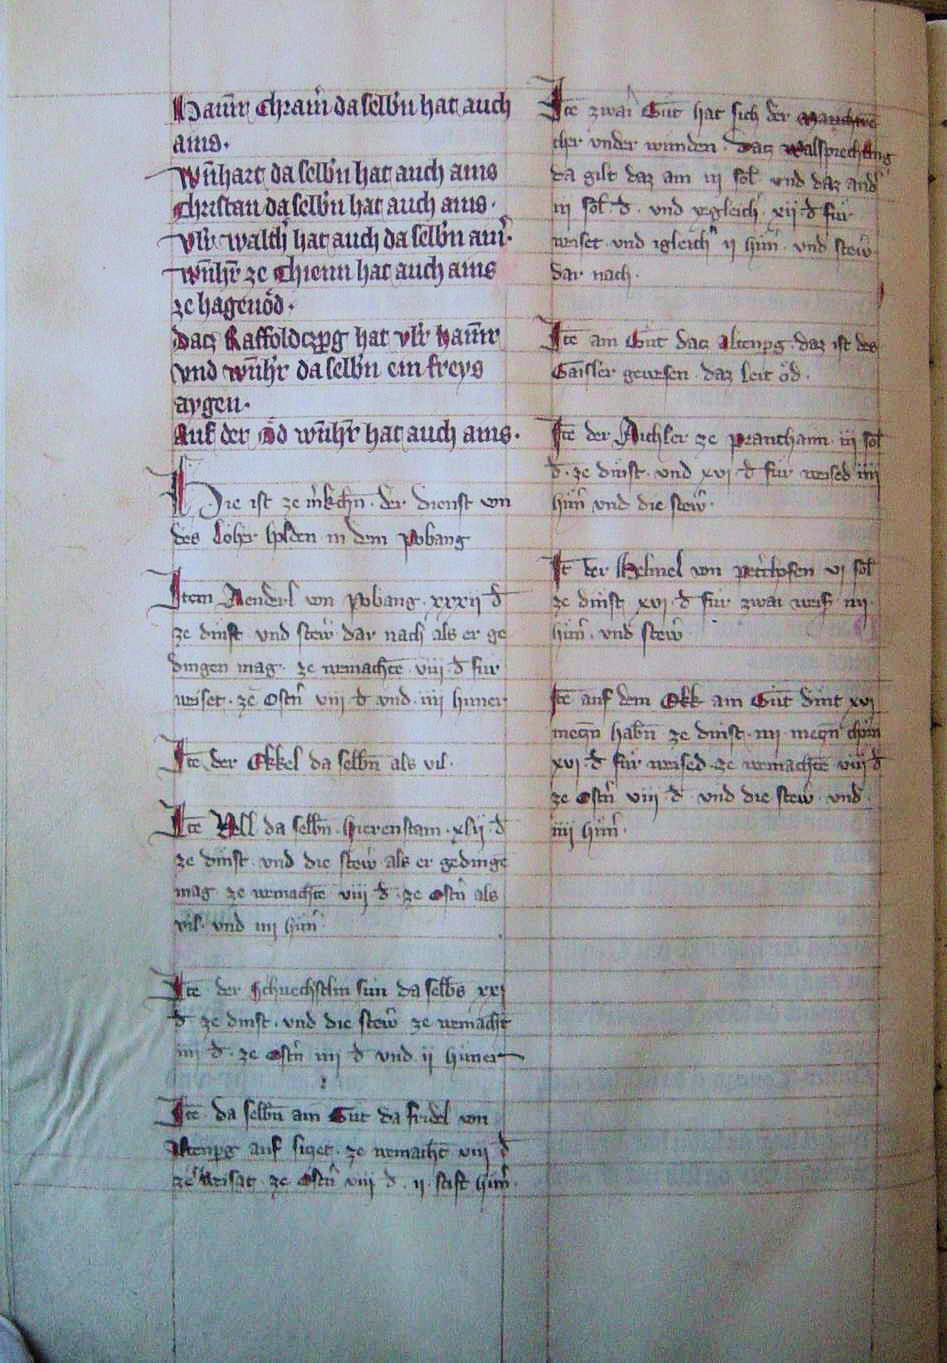 Hainr̄ Chram̄ da selbn̄ hat auch
ains.
Wn̄hart da selbn̄ hat auch ains
Christan da selbn̄ hat auch ains.
Vlr̄ walch hat auch da selbn̄ ain̄.
Wn̄hr̄ ze Chienn hat auch ains
ze hagenöd.
Datz Raffoldczpg hat vlr̄ hainr̄
vnd wn̄hr̄ da selbn̄ ein freys
aygen.
Auf der Öd wn̄hr̄ hat auch ains.
Hie ist ze m̄kchn̄ der dienst von
des Loher holden in dem pobang
Item Aenderl von pobang xxxii d̄
ze dinst vnd stew̄ dar nach als er ge
dingen mag. ze wemachtē viii d̄ für
weiset. ze Ostn̄ viii d̄ vnd iiii huner
Itē der Ekkel da selbn̄ als vil.
Itē Vll da selbn̄ hierenstain xlii d̄
ze dinst vnd die stew̄ als er gedinge
mag ze wemachtē viii d̄ ze Ostn̄ als
vil. vnd iiii hūn̄
Itē der Schuechstlin sun da selbs xxi
d̄ ze dinst. vnd die stew̄ ze wemacht̄
iiii d̄. ze Ostn̄ iiii d̄ vnd ii huner
Itē da selbn̄ ain Gut da fridel von
Altenpg auf siczet. ze wemacht̄ viii d̄
ze weisat. ze Ostn̄ viii d̄. ii. stift hūn̄.
Itē zwai Gut hat sich der
cher vnder wunden. Datz walsprechting
da gilt daz ain iii sol̄ vnd daz and̄
iii sol̄ d̄. vnd ygleich xii d̄ für
weiset vnd igleich ii hūn̄. vnd stew̄
dar nach.
Itē ain Gut datz Altenpg. daz ist des
Gaisler gewesen. daz leit öd.
Itē der Aichler ze pranthaim iii sol̄
d̄. ze dinst. vnd xvi d̄ für weised iiii
hūn̄ vnd die stew̄.
It̄ der Helmel von petthofen vi sol̄
ze dinst xvi d̄ für zwai weis̄ iiii.
hūn̄. vnd stew̄
Itē auf dem Ekk ain Gut dint xvi
meczn̄ habn̄ ze dinst. iiii meczn̄ chorn
xvi d̄ für weised. ze wemachtē viii d̄
ze Ostn̄ viii d̄ vnd die stew̄ vnd
iiii hūn̄.